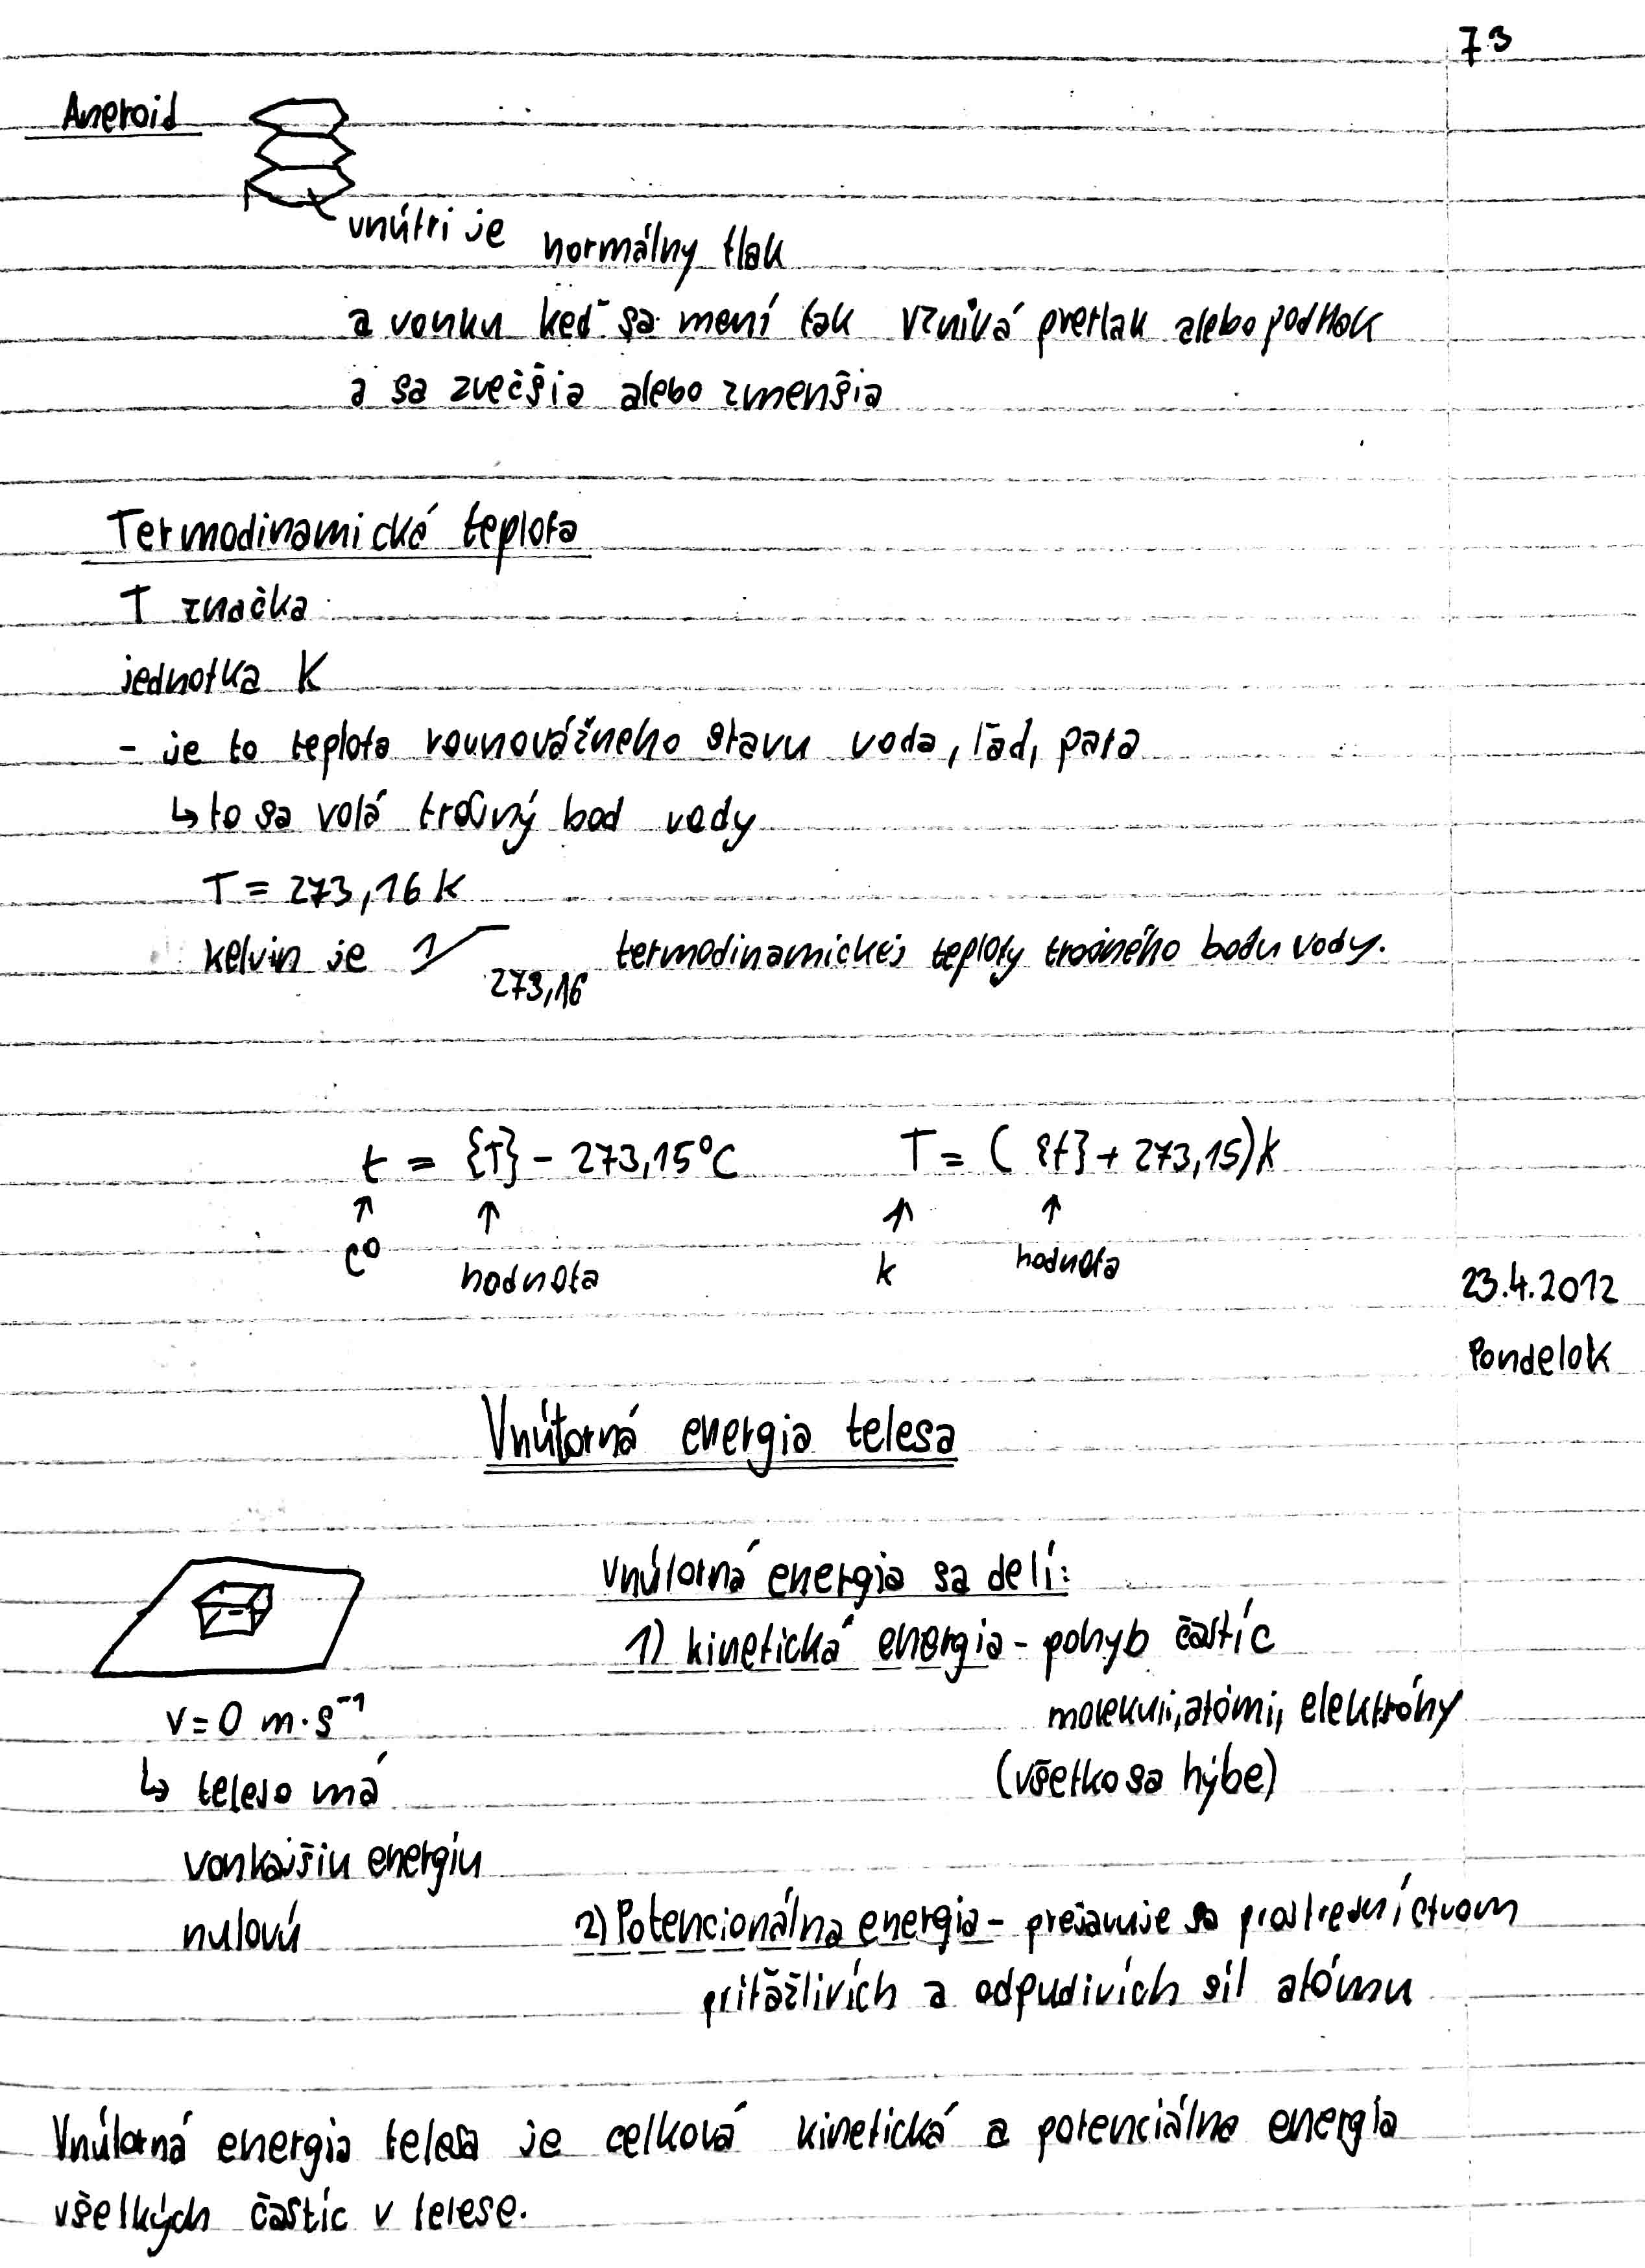 73
Aneroid
vnútri je normálny tlak
a vonku keď sa mení tak vzniká pretlak alebo podtlak
a sa zvečšia alebo zmenšia
Termodinamická teplota
T značka
jednotka K
- je to teplota rovnovážneho stavu voda, ľad, para
↳ to sa volá trojný bod vody
T = 273,16 K
kelvin je 1/273,16 termodinamickej teploty trojného bodu vody.
t = {T} - 273,15°C T = ( {t} + 273,15) k
↑ ↑ ↑ ↑
C° hodnota k hodnota
23.4.2012
Pondelok
Vnútorná energia telesa
Vnútorná energia sa delí:
1) kinetická energia - pohyb častíc
molekuli, atómi, elektróny
(všetko sa hýbe)
v = 0 m·s⁻¹
↳ teleso má
vonkajšiu energiu
nulovú
2) Potencionálna energia - prejavuje sa prostredníctvom
priťažlivích a odpudivích síl atómu
Vnútorná energia telesa je celková kinetická a potenciálna energia
všetkých častíc v telese.